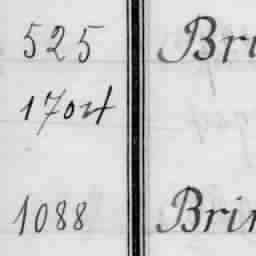 525 Bri
1704
1088 Brin